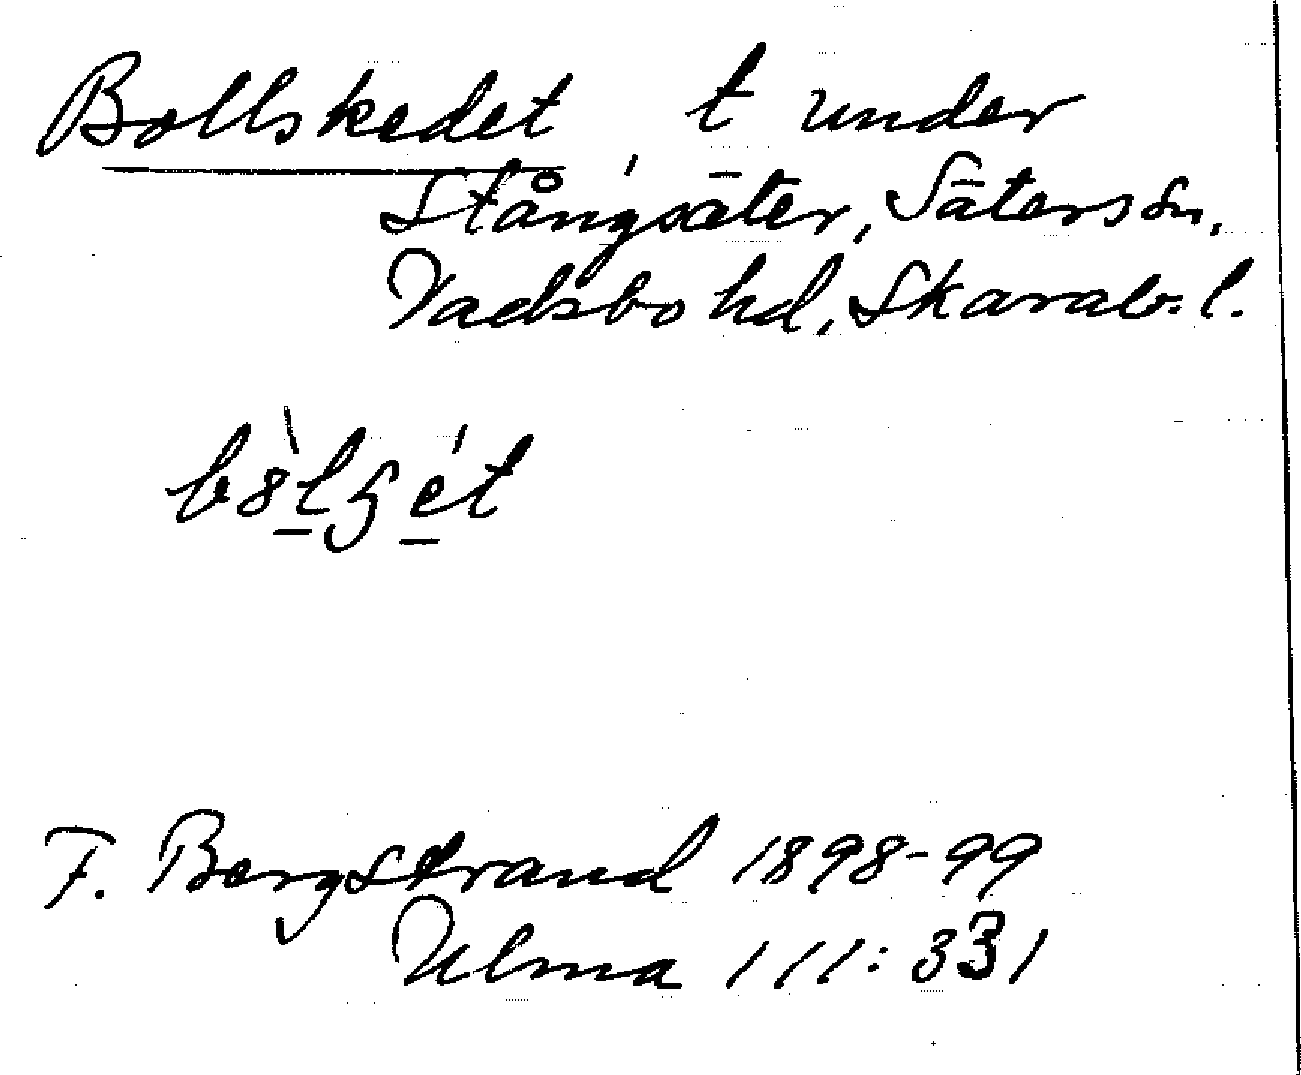 Bollskedet, t under
Stångsäter, Säters sn,
Vadsbo hd, Skarab. l.
F. Bergstrand 1898-99
Ulma 111:331